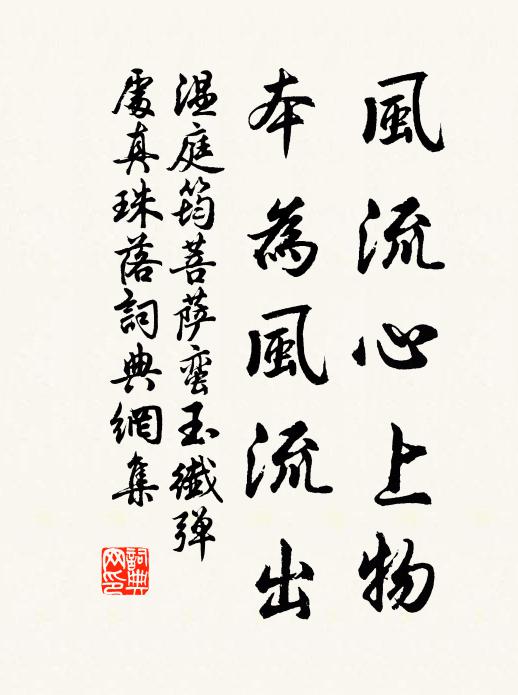 風流心上物
本為風流出
温庭筠菩薩蛮玉纖弹
處真珠落詞典網集
詞典网印